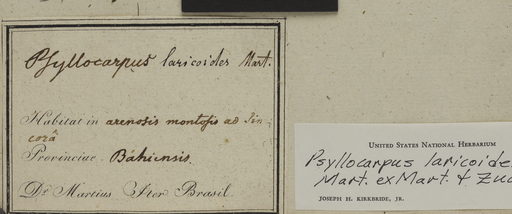 Psyllocarpus laricoides Mart.
Habitat in arenosis montosis ad Sin-
corá
Provinciae Bahiensis.
Dr. Martius Iter Brasil.
UNITED STATES NATIONAL HERBARIUM
Psyllocarpus laricoide
Mart. ex Mart. & Zuc
JOSEPH H. KIRKBRIDE, JR.